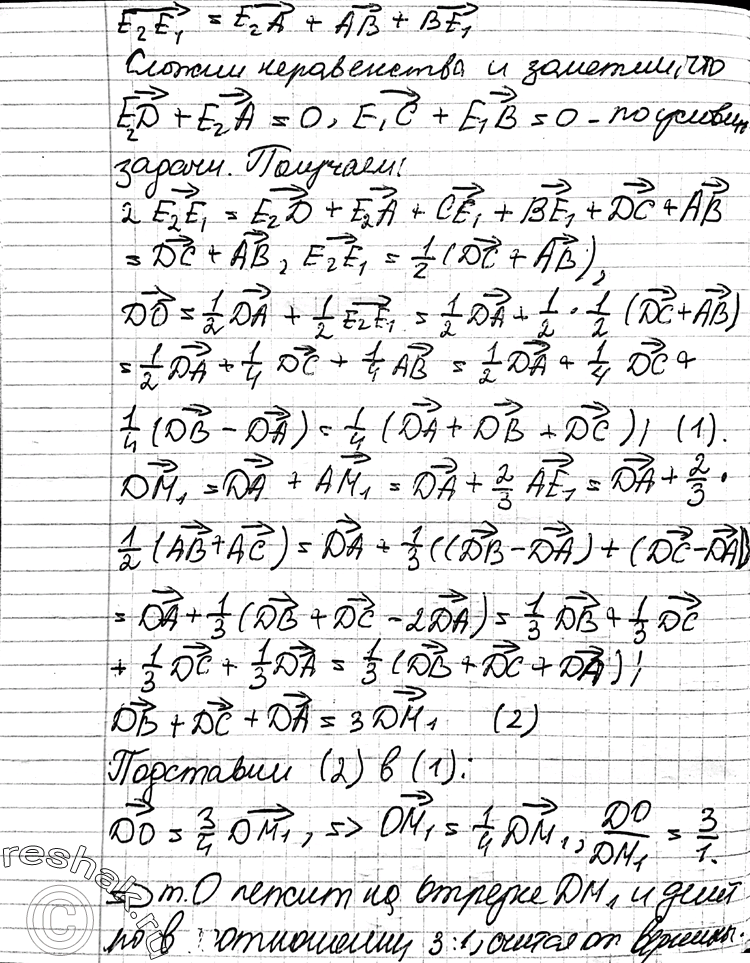 E₂E₁ = E₂A + AB + BE₁
Сложим неравенства и заметим, что
E₂D + E₂A = 0, E₁C + E₁B = 0 - по условию
задачи. Получаем:
2 E₂E₁ = E₂D + E₂A + CE₁ + BE₁ + DC + AB
= DC + AB, E₂E₁ = 1/2 (DC + AB),
DO = 1/2 DA + 1/2 E₂E₁ = 1/2 DA + 1/2 · 1/2 (DC + AB)
= 1/2 DA + 1/4 DC + 1/4 AB = 1/2 DA + 1/4 DC +
1/4 (DB - DA) = 1/4 (DA + DB + DC); (1).
DM₁ = DA + AM₁ = DA + 2/3 AE₁ = DA + 2/3 ·
1/2 (AB + AC) = DA + 1/3 ((DB - DA) + (DC - DA))
= DA + 1/3 (DB + DC - 2DA) = 1/3 DB + 1/3 DC
+ 1/3 DC + 1/3 DA = 1/3 (DB + DC + DA);
DB + DC + DA = 3 DM₁ (2)
Подставим (2) в (1):
DO = 3/4 DM₁, => OM₁ = 1/4 DM₁, DO/DM₁ = 3/1.
=> т. O лежит на отрезке DM₁ и делит
в отношении 3:1, считая от вершины.
reshak.ru
©